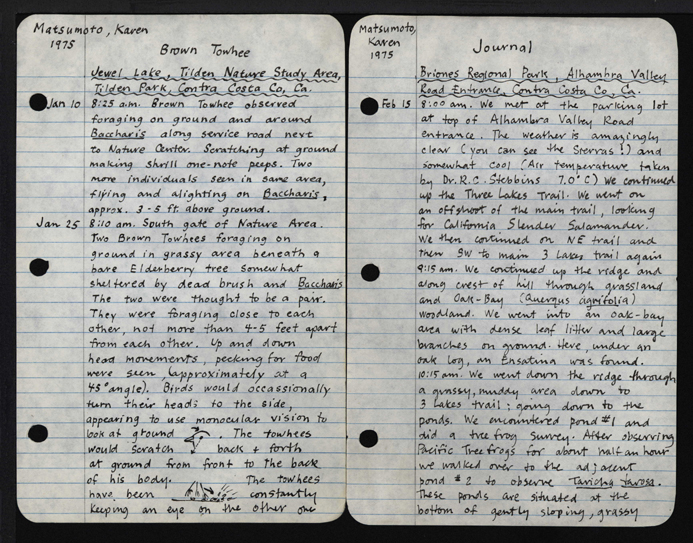 Matsumoto, Karen
1975
Brown Towhee
Jewel Lake, Tilden Nature Study Area,
Tilden Park, Contra Costa Co, Ca.
Jan 10 8:25 a.m. Brown Towhee observed
foraging on ground and around
Baccharis along service road next
to Nature Center. Scratching at ground
making shrill one-note peeps. Two
more individuals seen in same area,
flying and alighting on Baccharis,
approx. 3-5 ft. above ground.
Jan 25 8:10 am. South gate of Nature Area.
Two Brown Towhees foraging on
ground in grassy area beneath a
bare Elderberry tree somewhat
sheltered by dead brush and Baccharis
The two were thought to be a pair.
They were foraging close to each
other, not more than 4-5 feet apart
from each other. Up and down
head movements, pecking for food
were seen (approximately at a
45° angle). Birds would occassionally
turn their heads to the side,
appearing to use monocular vision to
look at ground . The towhees
would scratch back + forth
at ground from front to the back
of his body. The towhees
have been constantly
keeping an eye on the other one
Matsumoto,
Karen
1975
Journal
Briones Regional Park, Alhambra Valley
Road Entrance, Contra Costa Co, Ca.
Feb 15 8:00 am. We met at the parking lot
at top of Alhambra Valley Road
entrance. The weather is amazingly
clear (you can see the Sierras!) and
somewhat cool (Air temperature taken
by Dr. R.C. Stebbins 7.0°C) We continued
up the Three Lakes Trail. We went on
an offshoot of the main trail, looking
for California Slender Salamander.
We then continued on NE trail and
then SW to main 3 Lakes trail again
9:15 am. We continued up the ridge and
along crest of hill through grassland
and Oak-Bay (Quercus agrifolia)
woodland. We went into an oak-bay
area with dense leaf litter and large
branches on ground. Here, under an
oak log, an Ensatina was found.
10:15 am. We went down the ridge through
a grassy, muddy area down to
3 Lakes trail; going down to the
ponds. We encountered pond #1 and
did a tree frog survey. After observing
Pacific Treefrogs for about half an hour
we walked over to the adjacent
pond #2 to observe Taricha torosa.
These ponds are situated at the
bottom of gently sloping, grassy